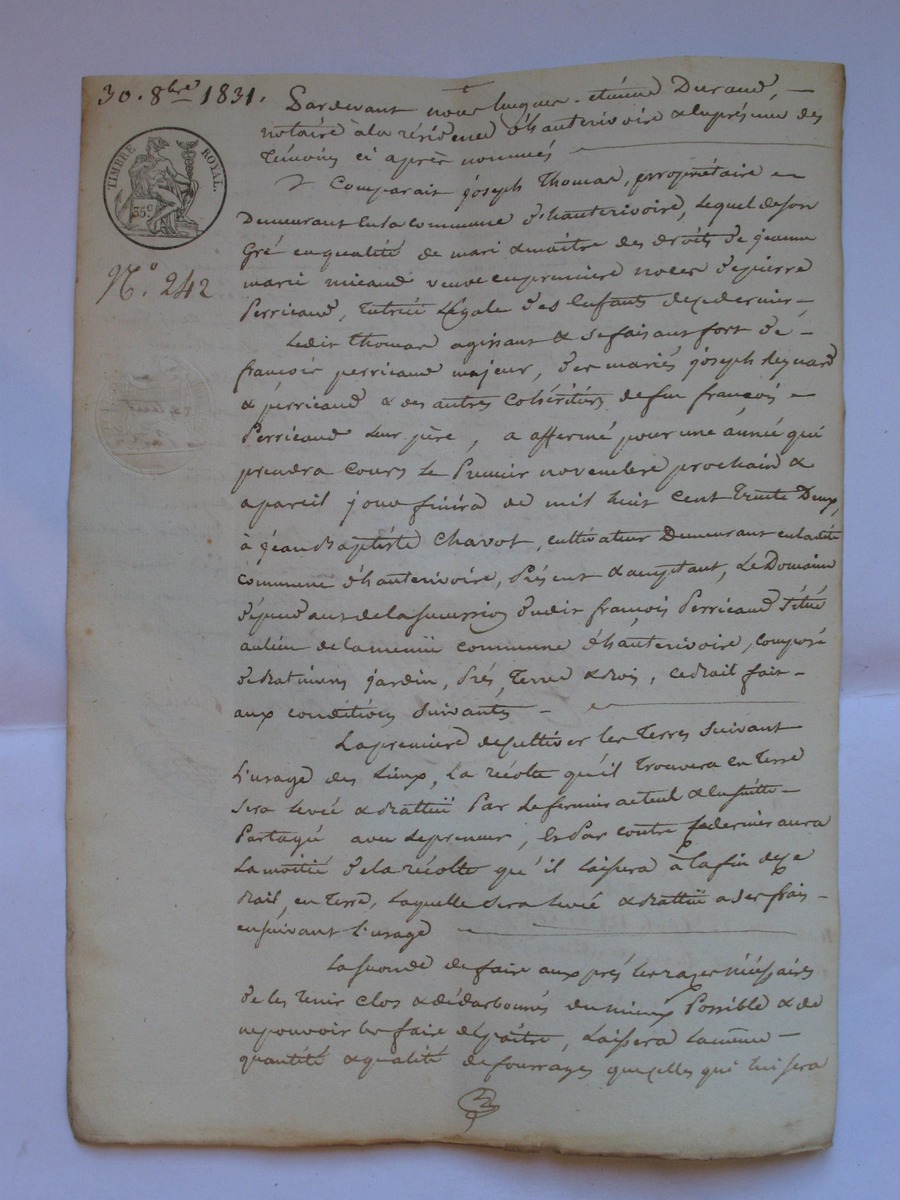 30. 8bre 1831.
TIMBRE ROYAL.
35c
N.o 242
Pardevant nous hugues-étienne Durand,
notaire à la résidence d'hauterivoire & en présence des
Témoins ci après nommés
Comparait joseph Thomas, propriétaire
Demeurant en la commune d'hauterivoire, Lequel de son
Gré en qualité de mari & maître des droits de jeanne
marie micaud veuve en premiere noces de pierre
Perricaud, Tutrice Légale des Enfants de ce dernier
Ledit Thomas agissant & se faisant fort de
françois perricaud majeur, des mariés joseph
& perricaud & des autres Cohéritiers de feu françois
Perricaud Leur père, a affermé pour une année qui
prendra Cours Le Premier novembre prochain &
a pareil jour finira de mil huit cent Trente Deux,
à jean Baptiste Chavot, cultivateur Demeurant en ladite
Commune d'hauterivoire, Présent & acceptant, Le Domaine
dépendant de la succession dudit françois Perricaud situé
au lieu de la commune d'hauterivoire, composé
de Batimens jardin, Prés, Terre & Bois, ce Bail fait
aux conditions suivantes
La premiere de cultiver les Terres suivant
L'usage des Lieux, La récolte qu'il Trouvera en Terre
sera levée & Battue Par Le fermier actuel & ensuite
Partagé avec Le preneur, Et Par contre ce dernier aura
La moitié de la récolte qu'il Laissera à la fin de ce
Bail, en Terre, Laquelle sera Levée & Battue a ses frais
en suivant L'usage
La seconde de faire aux prés les rases nécessaires
de les Tenir clos & dédarbonnés du mieux Possible & de
ne pouvoir les faire dépaître, Laissera La même
quantité & qualité de fourrages que celles qui lui sera